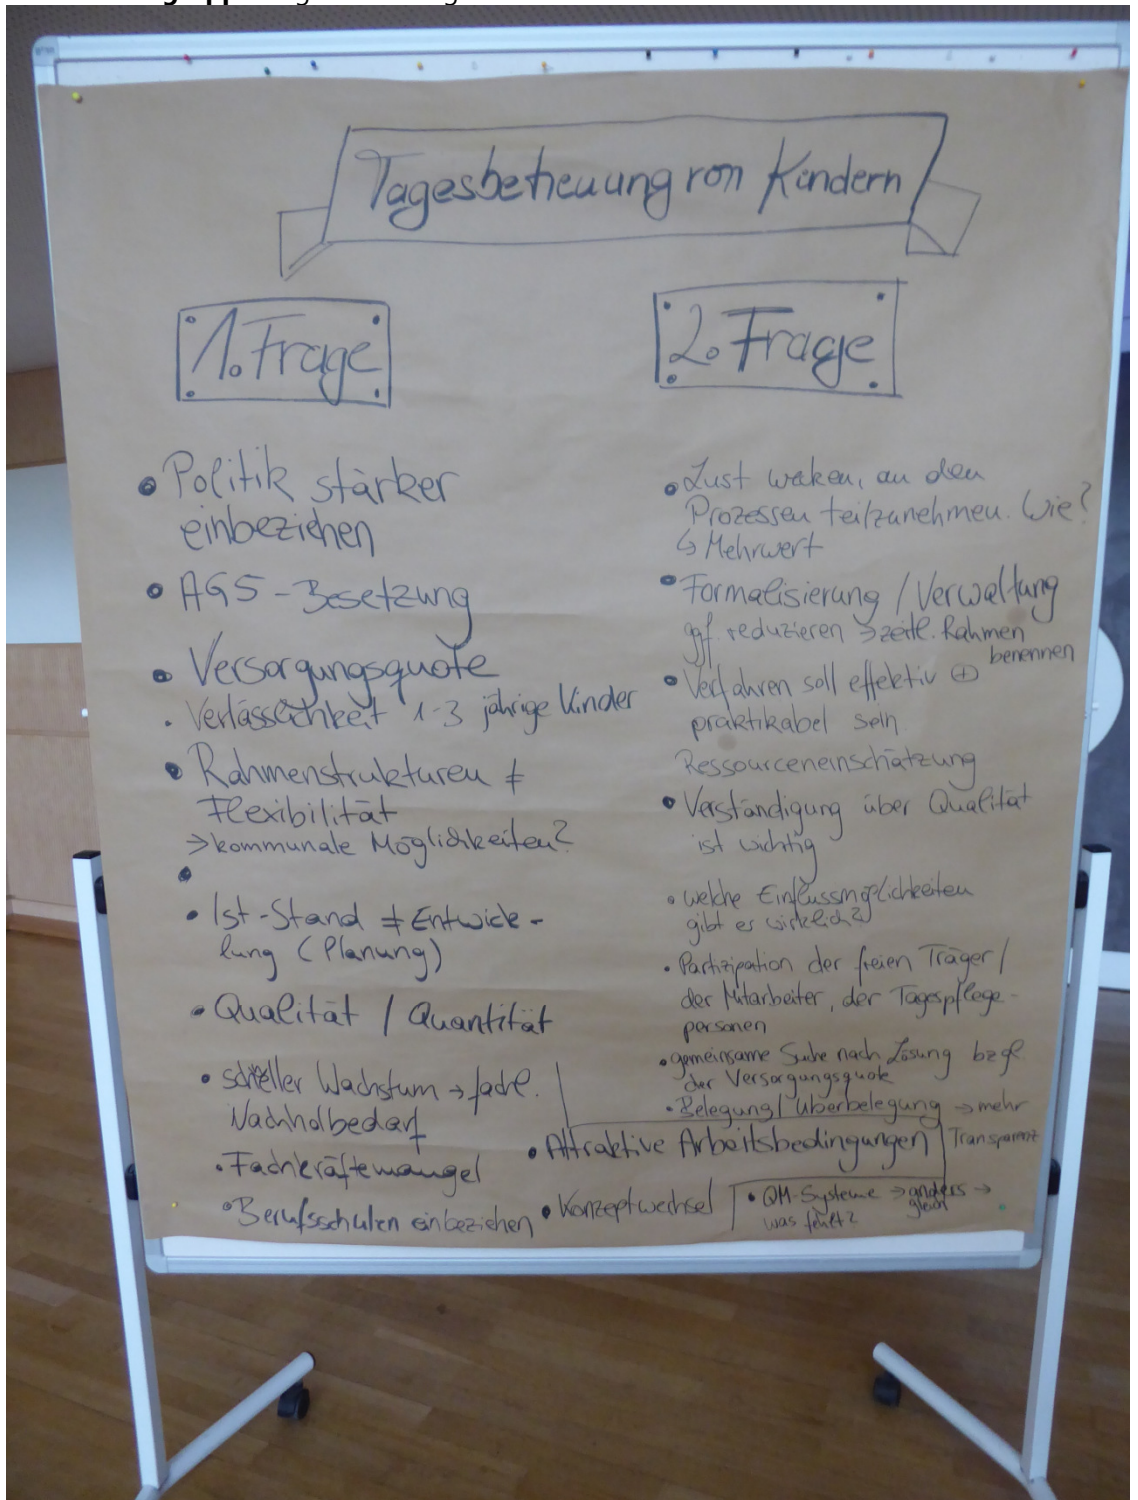 Tagesbetreuung von Kindern
1. Frage
• Politik stärker
einbeziehen
• AG5 - Besetzung
• Versorgungsquote
. Verlässlichkeit 1-3 jährige Kinder
• Rahmenstrukturen ≠
Flexibilität
→ kommunale Möglichkeiten?
•
• Ist-Stand ≠ Entwick-
lung (Planung)
• Qualität / Quantität
• schneller Wachstum → fachl.
Nachholbedarf
• Fachkräftemangel
• Berufsschulen einbeziehen
2. Frage
• Lust wecken, an den
Prozessen teilzunehmen. Wie?
↳ Mehrwert
• Formalisierung / Verwaltung
ggf. reduzieren → zeitl. Rahmen
benennen
• Verfahren soll effektiv ⊕
praktikabel sein
Ressourceneinschätzung
• Verständigung über Qualität
ist wichtig
• welche Einflussmöglichkeiten
gibt es wirklich?
• Partizipation der freien Träger /
der Mitarbeiter, der Tagespflege-
personen
• gemeinsame Suche nach Lösung bzgl
der Versorgungsquote
• Belegung / Überbelegung → mehr
Transparenz
• Attraktive Arbeitsbedingungen
• Konzeptwechsel
• QM-Systeme → anders →
gleich
was fehlt?